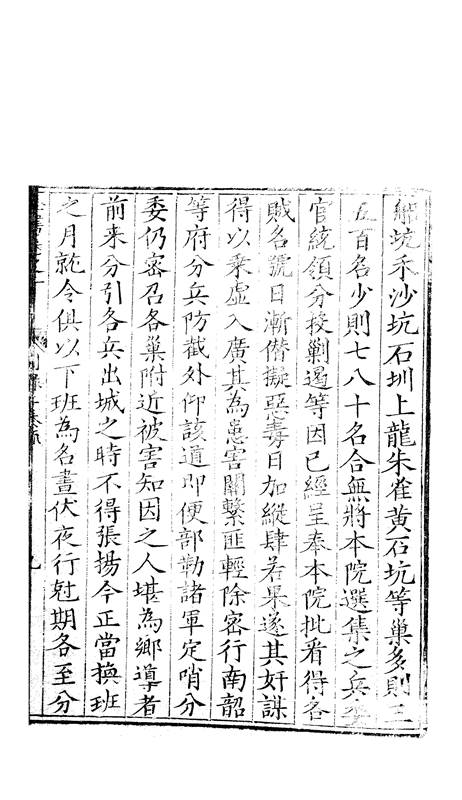 坑禾沙坑石圳上龍朱雀黃石坑等巢多則三
五百名少則七八十名合無將本院選集之兵委
官統領分投剿遏等因已經呈奉本院批看得各
賊名號日漸僭擬惡毒日加縱肆若果遂其奸謀
得以乘虛入廣其為患害關繫匪輕除密行南韶
等府分兵防截外仰該道即便部勒諸軍定哨分
委仍密召各巢附近被害知因之人堪為鄉導者
前来分引各兵出城之時不得張揚今正當換班
之月就令俱以下班為名晝伏夜行尅期各至分